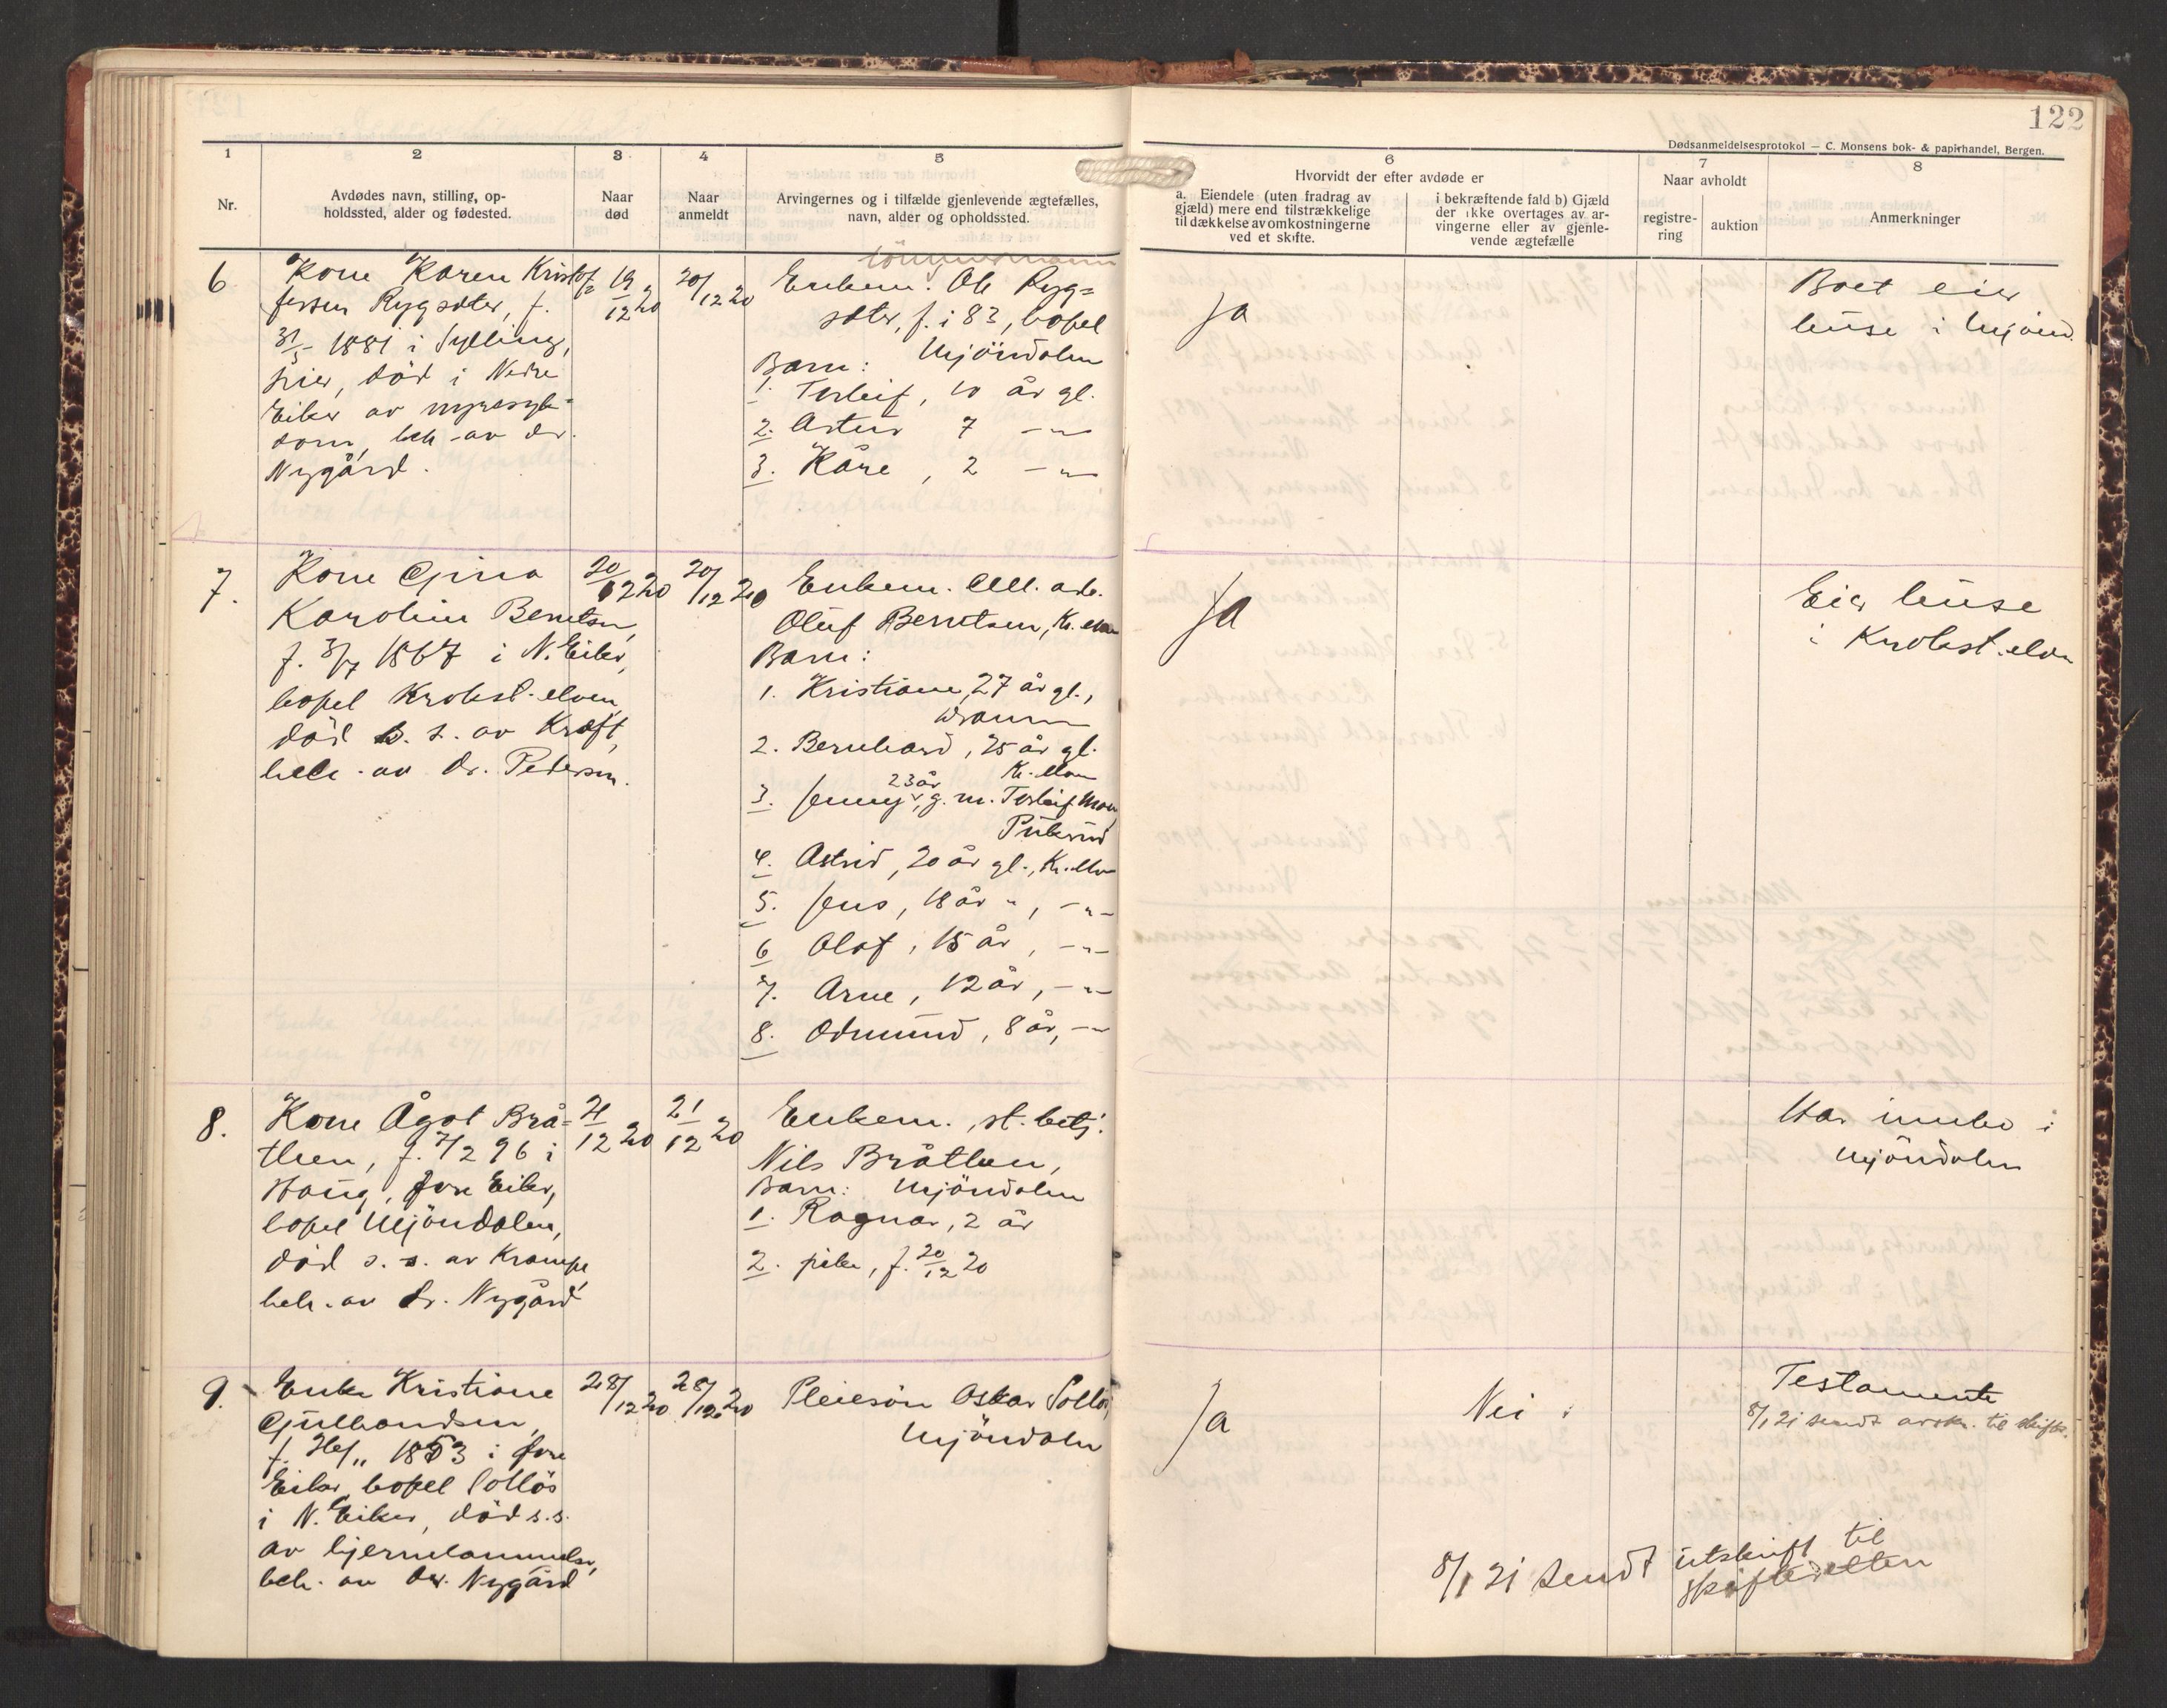 122
Dødsanmeldelsesprotokol — C. Monsens bok- & papirhandel, Bergen.
1
Nr.
2
Avdødes navn, stilling, op-
holdssted, alder og fødested.
3
Naar
død
4
Naar
anmeldt
5
Arvingernes og i tilfælde gjenlevende ægtefælles,
navn, alder og opholdssted.
6
Hvorvidt der efter avdøde er
a. Eiendele (uten fradrag av
gjæld) mere end tilstrækkelige
til dækkelse av omkostningerne
ved et skifte.
i bekræftende fald b) Gjæld
der ikke overtages av ar-
vingerne eller av gjenle-
vende ægtefælle
7
Naar avholdt
registre-
ring
auktion
8
Anmerkninger
6
Kone Karen Kristof=
fersen Rygsæter, f.
31/5 1881 i Sylling,
Lier, död i Nedre
Eiker av nyresyk-
dom, beh. av dr.
Nygård.
19/12 20
20/12 20
tömmermann
Enkem. Ole Ryg=
sæter, f. i 83, bopel
Mjöndalen
Barn:
1. Torleif, 10 år gl.
2. Artur 7 -"-
3. Kåre, 2 -"-
Ja
Boet eier
huse i Mjönd.
7.
Kone Gina
Karoline Berntsen,
f. 3/7 1867 i N. Eiker,
bopel Krokst.elven,
död s. s. av Kræft,
beh. av dr. Pedersen.
20/12 20
20/12 20
Enkem. Cell. arb.
Oluf Berntsen, Kr. elven
Barn:
1. Kristiane, 27 år gl.,
Drammen
2. Bernhard, 25 år gl.
Kr. elven
3. Jenny, 23 år g. m. Torleif Moen,
Pukerud
4. Astrid, 20 år gl., Kr. elven
5. Jens, 18 år ", -"-
6 Olaf, 15 år, -"-
7. Arne, 12 år, -"-
8. Odmund, 8 år, -"-
Ja
Eier huse
i Krokst.elven
8.
Kone Ågot Brå=
then, f. 7/2 96 i
Haug, Övre Eiker,
bopel Mjöndalen,
död s. s. av Krampe,
beh. av dr. Nygård
21/12 20
21/12 20
Enkem., st. betj.
Nils Bråthen,
Barn: Mjöndalen
1. Ragnar, 2 år
2. pike, f. 20/12 20
Har innbo i
Mjöndalen
9.
Enke Kristiane
Gulbrandsen,
1853 i Övre
Eiker, bopel Solløs
i N. Eiker, död s.s.
av hjernelammelse,
beh. av dr. Nygård
28/12 20
28/12 20
Pleiesön Oskar
Mjöndalen
Ja
Nei
Testamente
8/1 21 sendt avskr. til skifter.
8/1 21 sendt utskrift til
skifteretten